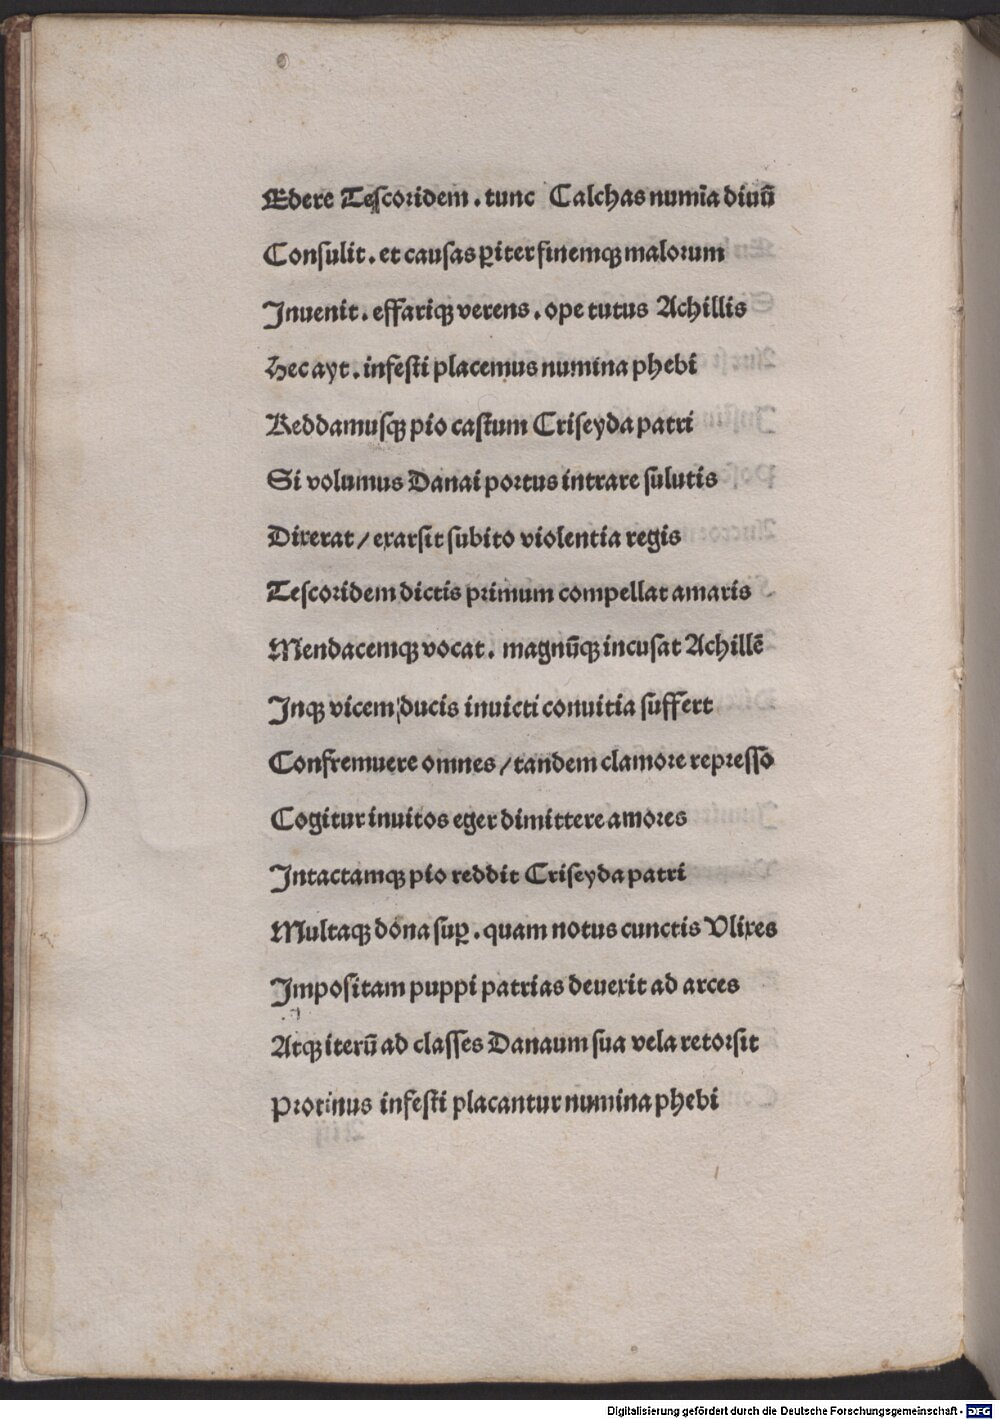 Edere Tescoridem . tunc Calchas numīa diuū
Consulit . et causas ꝑiter finemqꝫ malorum
Inuenit . effariqꝫ verens . ope tutus Achillis
Hec ayt . infesti placemus numina phebi
Reddamusqꝫ pio castum Criseyda patri
Si volumus Danai portus intrare sulutis
Dixerat / exarsit subito violentia regis
Tescoridem dictis primum compellat amaris
Mendacemqꝫ vocat . magnūqꝫ incusat Achillē
Inqꝫ vicem ducis inuicti conuitia suffert
Confremuere omnes / tandem clamore represso
Cogitur inuitos eger dimittere amores
Intactamqꝫ pio reddit Criseyda patri
Multaqꝫ dona suꝑ . quam notus cunctis Vlixes
Impositam puppi patrias deuexit ad arces
Atqꝫ iterū ad classes Danaum sua vela retorsit
Protinus infesti placantur numina phebi
Digitalisierung gefördert durch die Deutsche Forschungsgemeinschaft - DFG